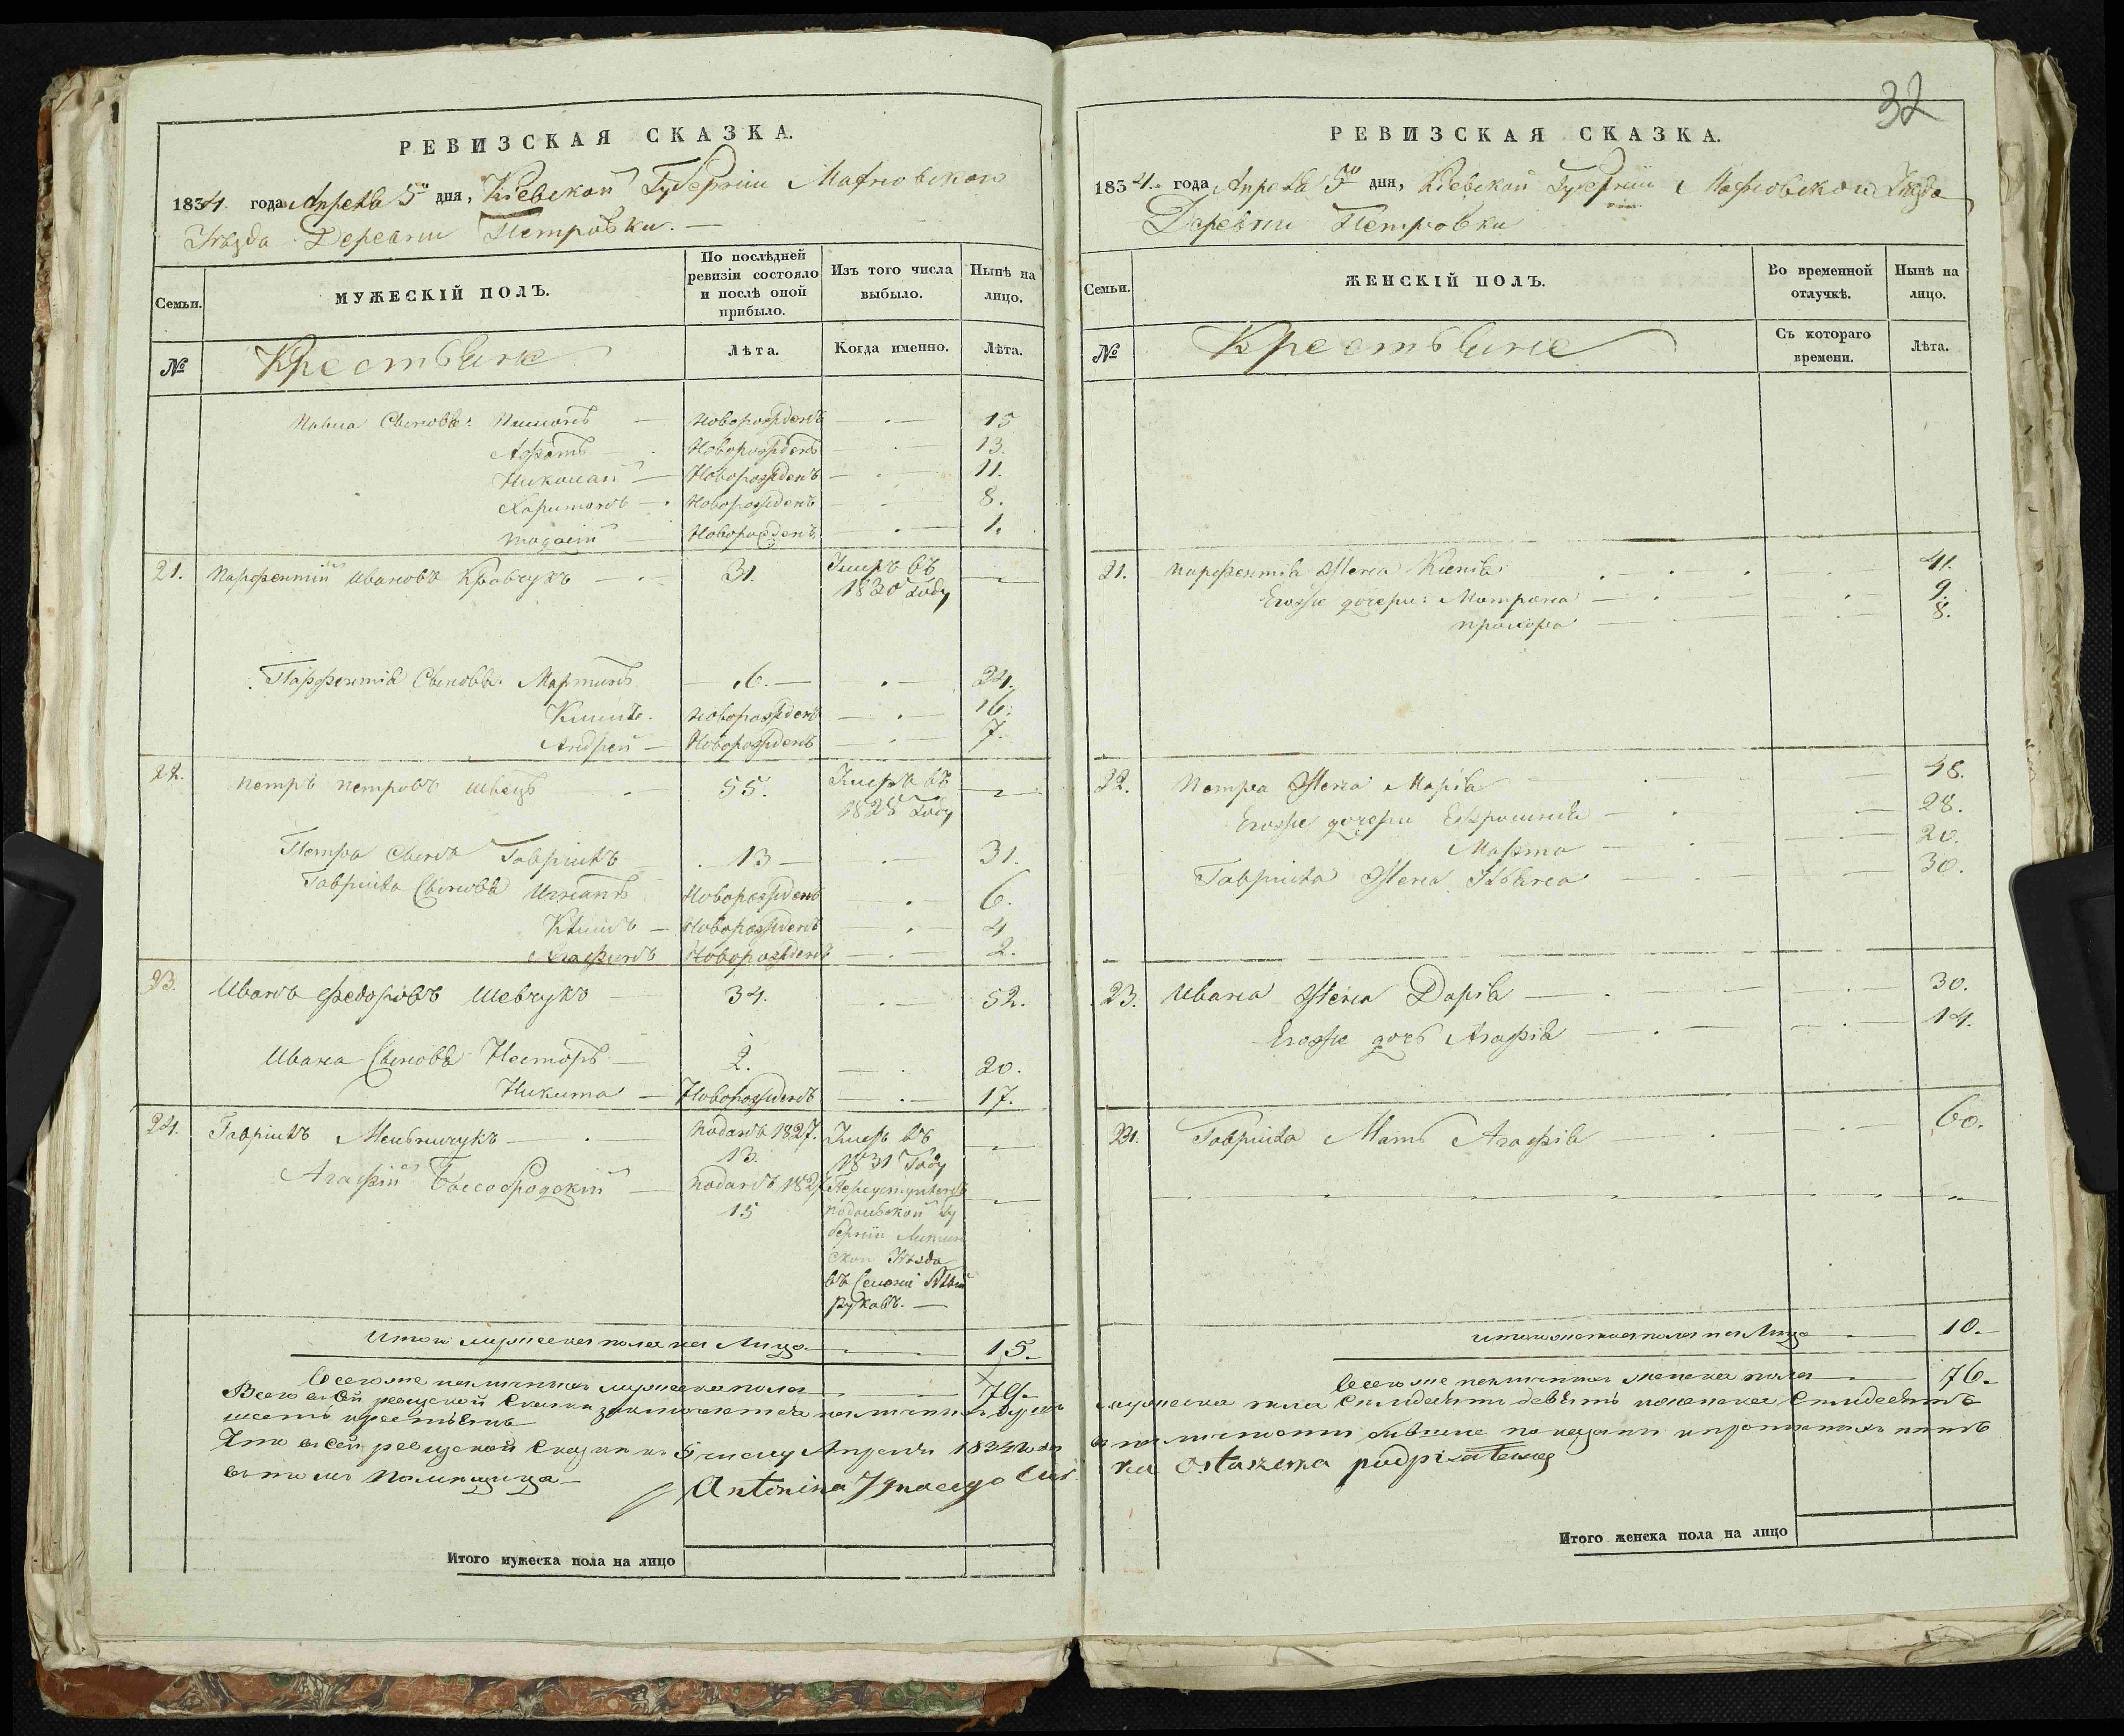 РЕВИЗСКАЯ СКАЗКА.
1834 года Апреля 5го дня, Кіевской Губерніи Махновскои
Уѣзда Деревни Петровки. —
Семьи.
МУЖЕСКІЙ ПОЛЪ.
По послѣдней ревизіи состояло и послѣ оной прибыло.
Изъ того числа выбыло.
Нынѣ на лицо.
№
Крестьяне
Лѣта.
Когда именно.
Лѣта.
Павла Сыновья: Новорожденъ 15
Новорожденъ 13.
Николай Новорожденъ 11.
Харитонъ Новорожденъ 8.
Новорожденъ 1.
21. Парфентій Ивановъ Кравчукъ 31. Умеръ въ
1830 Году
Парфентія Сыновья: Мартинъ 6. 24.
Новорожденъ 16.
Андрей Новорожденъ 7.
22. Петръ Петровъ Швецъ 55. Умеръ въ
1828 Году
Петра Сынъ Гаврiилъ 13 31.
Гавріила Сыновья Игнатъ Новорожденъ 6.
Новорожденъ 4
Новорожденъ 2.
23. Иванъ Федоровъ Шевчукъ 34. 52.
Ивана Сыновья Несторъ 2. 20.
Никита Новорожденъ 17.
24. Гавріилъ Мельничукъ Поданъ 1827. Умеръ въ
13. 1831 Году
Агафій Поданъ 1827
15 Подольской Гу
берніи
Уѣзда
въ
Итого мужеска пола на Лицо 15.
Всего же наличныхъ мужеска пола 79.
Всего въ сей ревизской Сказки заключается наличныхъ душъ
шесть крестьянъ
Что въ сей ревизской Сказки къ 5 числу Апреля 1834 года
въ томъ Помещица
Antonina Ignacego
Итого мужеска пола на лицо
32
РЕВИЗСКАЯ СКАЗКА.
1834. года Апреля 5го дня, Кіевской Губерніи Махновскои Уѣзда
Деревни Петровки
Семьи.
ЖЕНСКІЙ ПОЛЪ.
Во временной отлучкѣ.
Нынѣ на лицо.
№
Крестьяне
Съ котораго времени.
Лѣта.
21. Парфентія Жена Ксенія 41.
Егоже дочери: Матрона 9.
8.
22. Петра Жена Марія 48.
Егоже дочери Ефросинія 28.
Марта 20.
Гавріила Жена 30.
23. Ивана Жена Дарія 30.
Егоже дочь Агафія 14.
24. Гавріила Мать Агафія 60.
Итого женска пола на Лицо 10.
Всего же наличныхъ женска пола 76.
мужеска пола Семидесятъ девять и женска Семидесятъ
ka ostaxema podpisałemsię
Итого женска пола на лицо